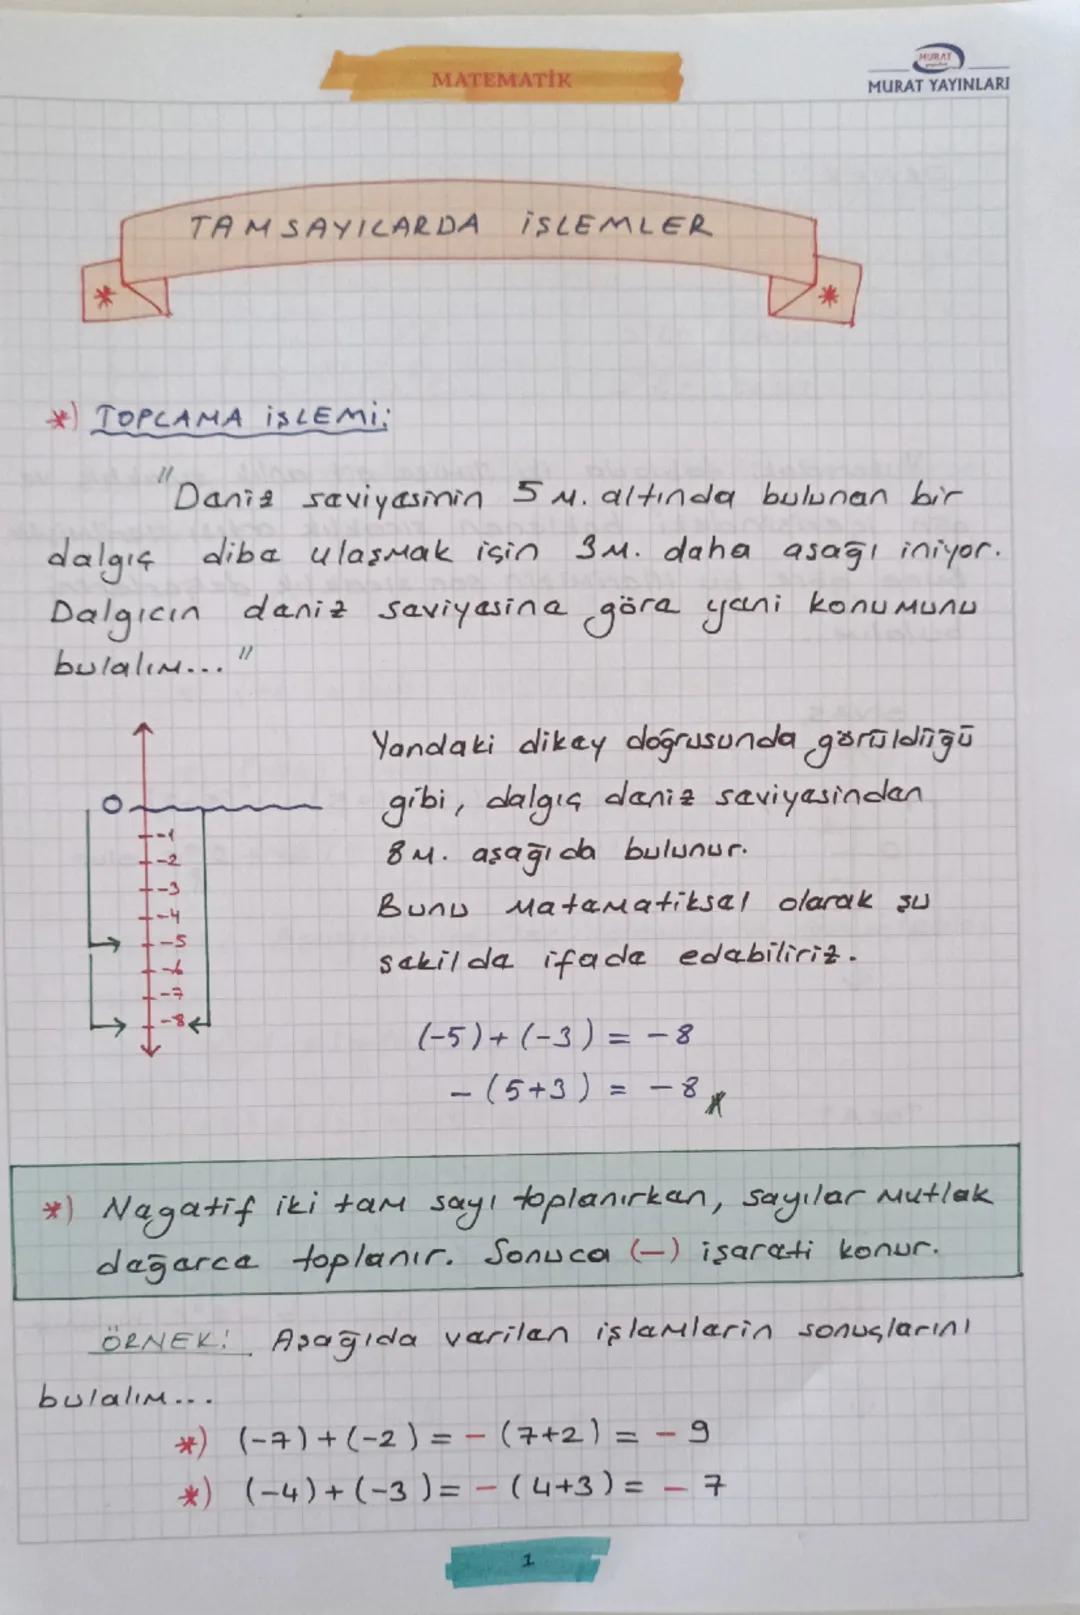 MATEMATİK
MURAT
yayınları
MURAT YAYINLARI
TAMSAYILARDA İŞLEMLER
*) TOPLAMA İŞLEMİ:
"Deniz seviyesinin 5 M. altında bulunan bir
dalgıç dibe ulaşmak için 3M. daha aşağı iniyor.
Dalgıcın deniz seviyesine göre yeni konumunu
bulalım... "
Yandaki dikey doğrusunda görüldüğü
gibi, dalgıç deniz seviyesinden
8 M. aşağıda bulunur.
Bunu matematiksel olarak şu
şekilde ifade edebiliriz.
0
-1
-2
-3
-4
-5
-6
-7
-8
(-5)+(-3) = -8
-(5+3) = -8
*) Negatif iki tam sayı toplanırken, sayılar mutlak
değerce toplanır. Sonuca (-) işareti konur.
ÖRNEK: Aşağıda verilen işlemlerin sonuçlarını
bulalım...
*) (-7)+(-2) = -(7+2) = -9
*) (-4)+(-3) = -(4+3) = -7
1